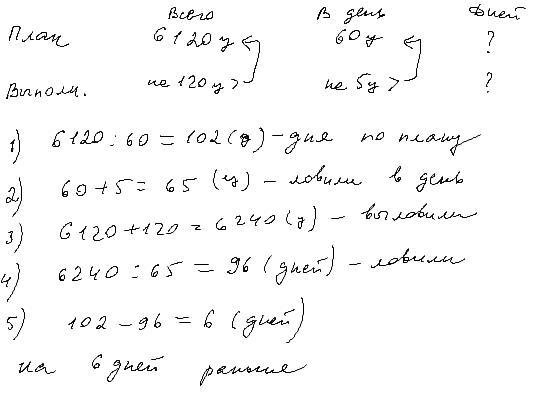 Всего В день Дней
План 6120ц 60ц ?
Выполн. на 120ц > на 5ц > ?
1) 6120 : 60 = 102 (д) - дня по плану
2) 60 + 5 = 65 (ц) - ловили в день
3) 6120 + 120 = 6240 (ц) - выловили
4) 6240 : 65 = 96 (дней) - ловили
5) 102 - 96 = 6 (дней)
на 6 дней раньше